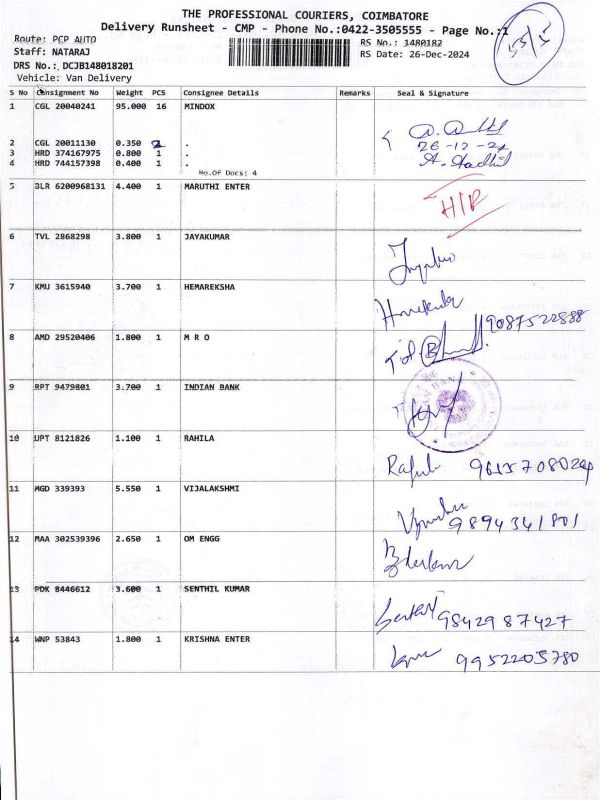 THE PROFESSIONAL COURIERS, COIMBATORE
Delivery Runsheet - CMP - Phone No.:0422-3505555 - Page No.:1
Route: PCP AUTO
RS No.: 1480182
Staff: NATARAJ
RS Date: 26-Dec-2024
DRS No.: DCJB148018201
Vehicle: Van Delivery
S No Consignment No Weight PCS Consignee Details Remarks Seal & Signature
1 CGL 20040241 95.000 16 MINDOX
2 CGL 20011130 0.350 2 .
26-12-24
3 HRD 374167975 0.800 1 .
4 HRD 744157398 0.400 1 .
No.Of Docs: 4
5 BLR 6200968131 4.400 1 MARUTHI ENTER
6 TVL 2868298 3.800 1 JAYAKUMAR
7 KMU 3615940 3.700 1 HEMAREKSHA
9087522888
8 AMD 29520406 1.800 1 M R O
9 RPT 9479801 3.700 1 INDIAN BANK
10 UPT 8121826 1.100 1 RAHILA
11 MGD 339393 5.550 1 VIJALAKSHMI
9894341801
12 MAA 302539396 2.650 1 OM ENGG
13 PDK 8446612 3.600 1 SENTHIL KUMAR
9842987427
14 WNP 53843 1.800 1 KRISHNA ENTER
9952205780